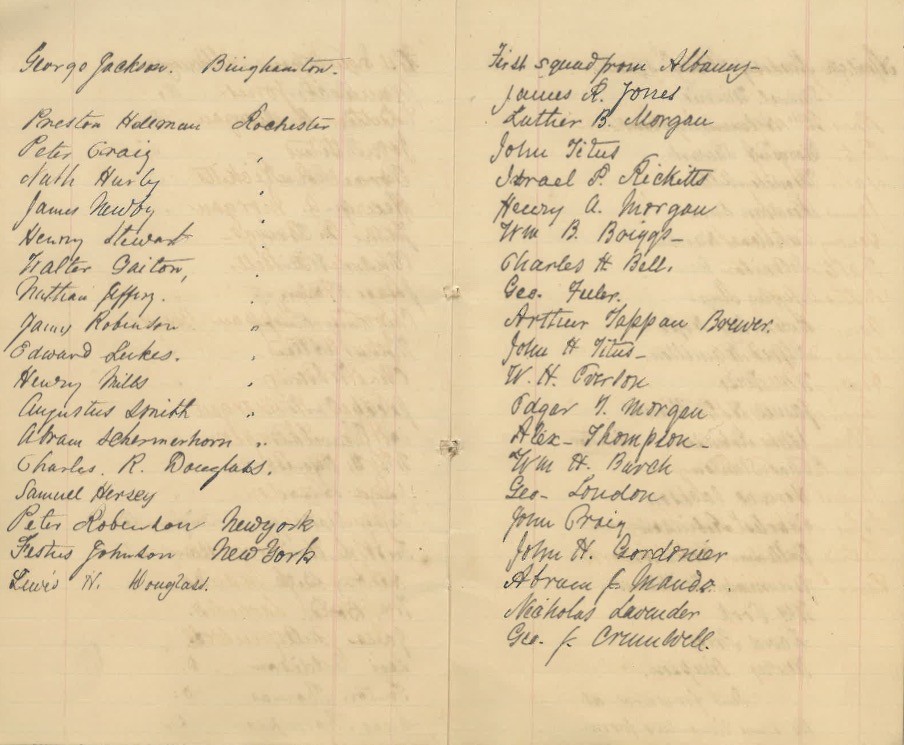 George Jackson. Binghamton.
Preston Helleman Rochester
Peter Craig "
Nath Hurley "
James Newby "
Henry Stewart "
Walter Gaiton, "
Nathan Jeffrey. "
James Robinson "
Edward Lukes. "
Henry Mills "
Augustus Smith "
Abram Schermerhorn "
Charles. R. Douglass.
Samuel Hersey
Peter Robinson Newyork
Festus Johnson New York
Lewis H. Douglass.
First squad from Albany-
James R. Jones
Luther B. Morgan
John Titus
Israel P. Ricketts
Henry A. Morgan
Wm B. Briggs-
Charles H Bell.
Geo.
Arthur Tappan Brewer.
John H Titus-
W. H. Overton
Edgar T. Morgan
Alex- Thompson-
Wm H. Burch
Geo- London
John Craig
John H. Gordonier
Abram J.
Nicholas Lavender
Geo. J. Crumwell.